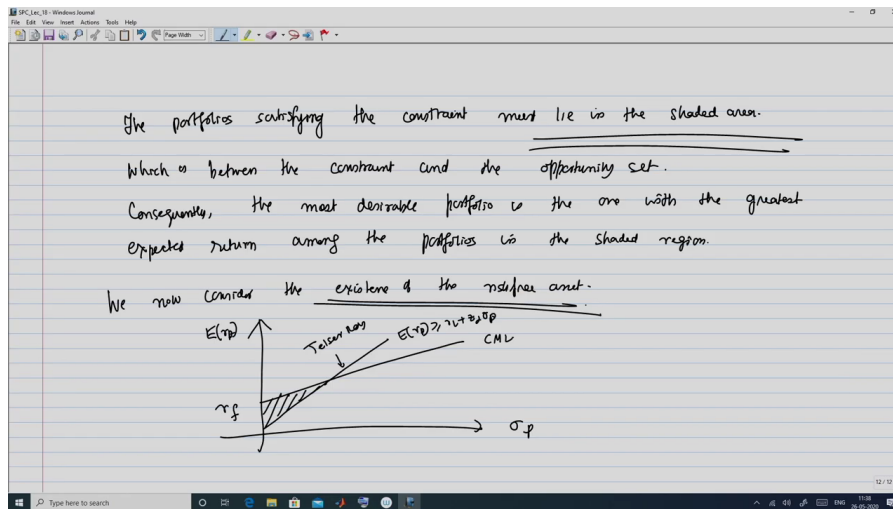 SPC_Lec_18 - Windows Journal
File Edit View Insert Actions Tools Help
Page Width
The portfolios satisfying the constraint must lie in the shaded area.
Which is between the constraint and the opportunity set.
Consequently, the most desirable portfolio is the one with the greatest
expected return among the portfolios in the shaded region.
We now consider the existence of the riskfree asset.
E(rp)
Telser
E(rp) ≥ rL + zα σp
CML
rf
σp
12 / 12
Type here to search
ENG
11:38
26-05-2020